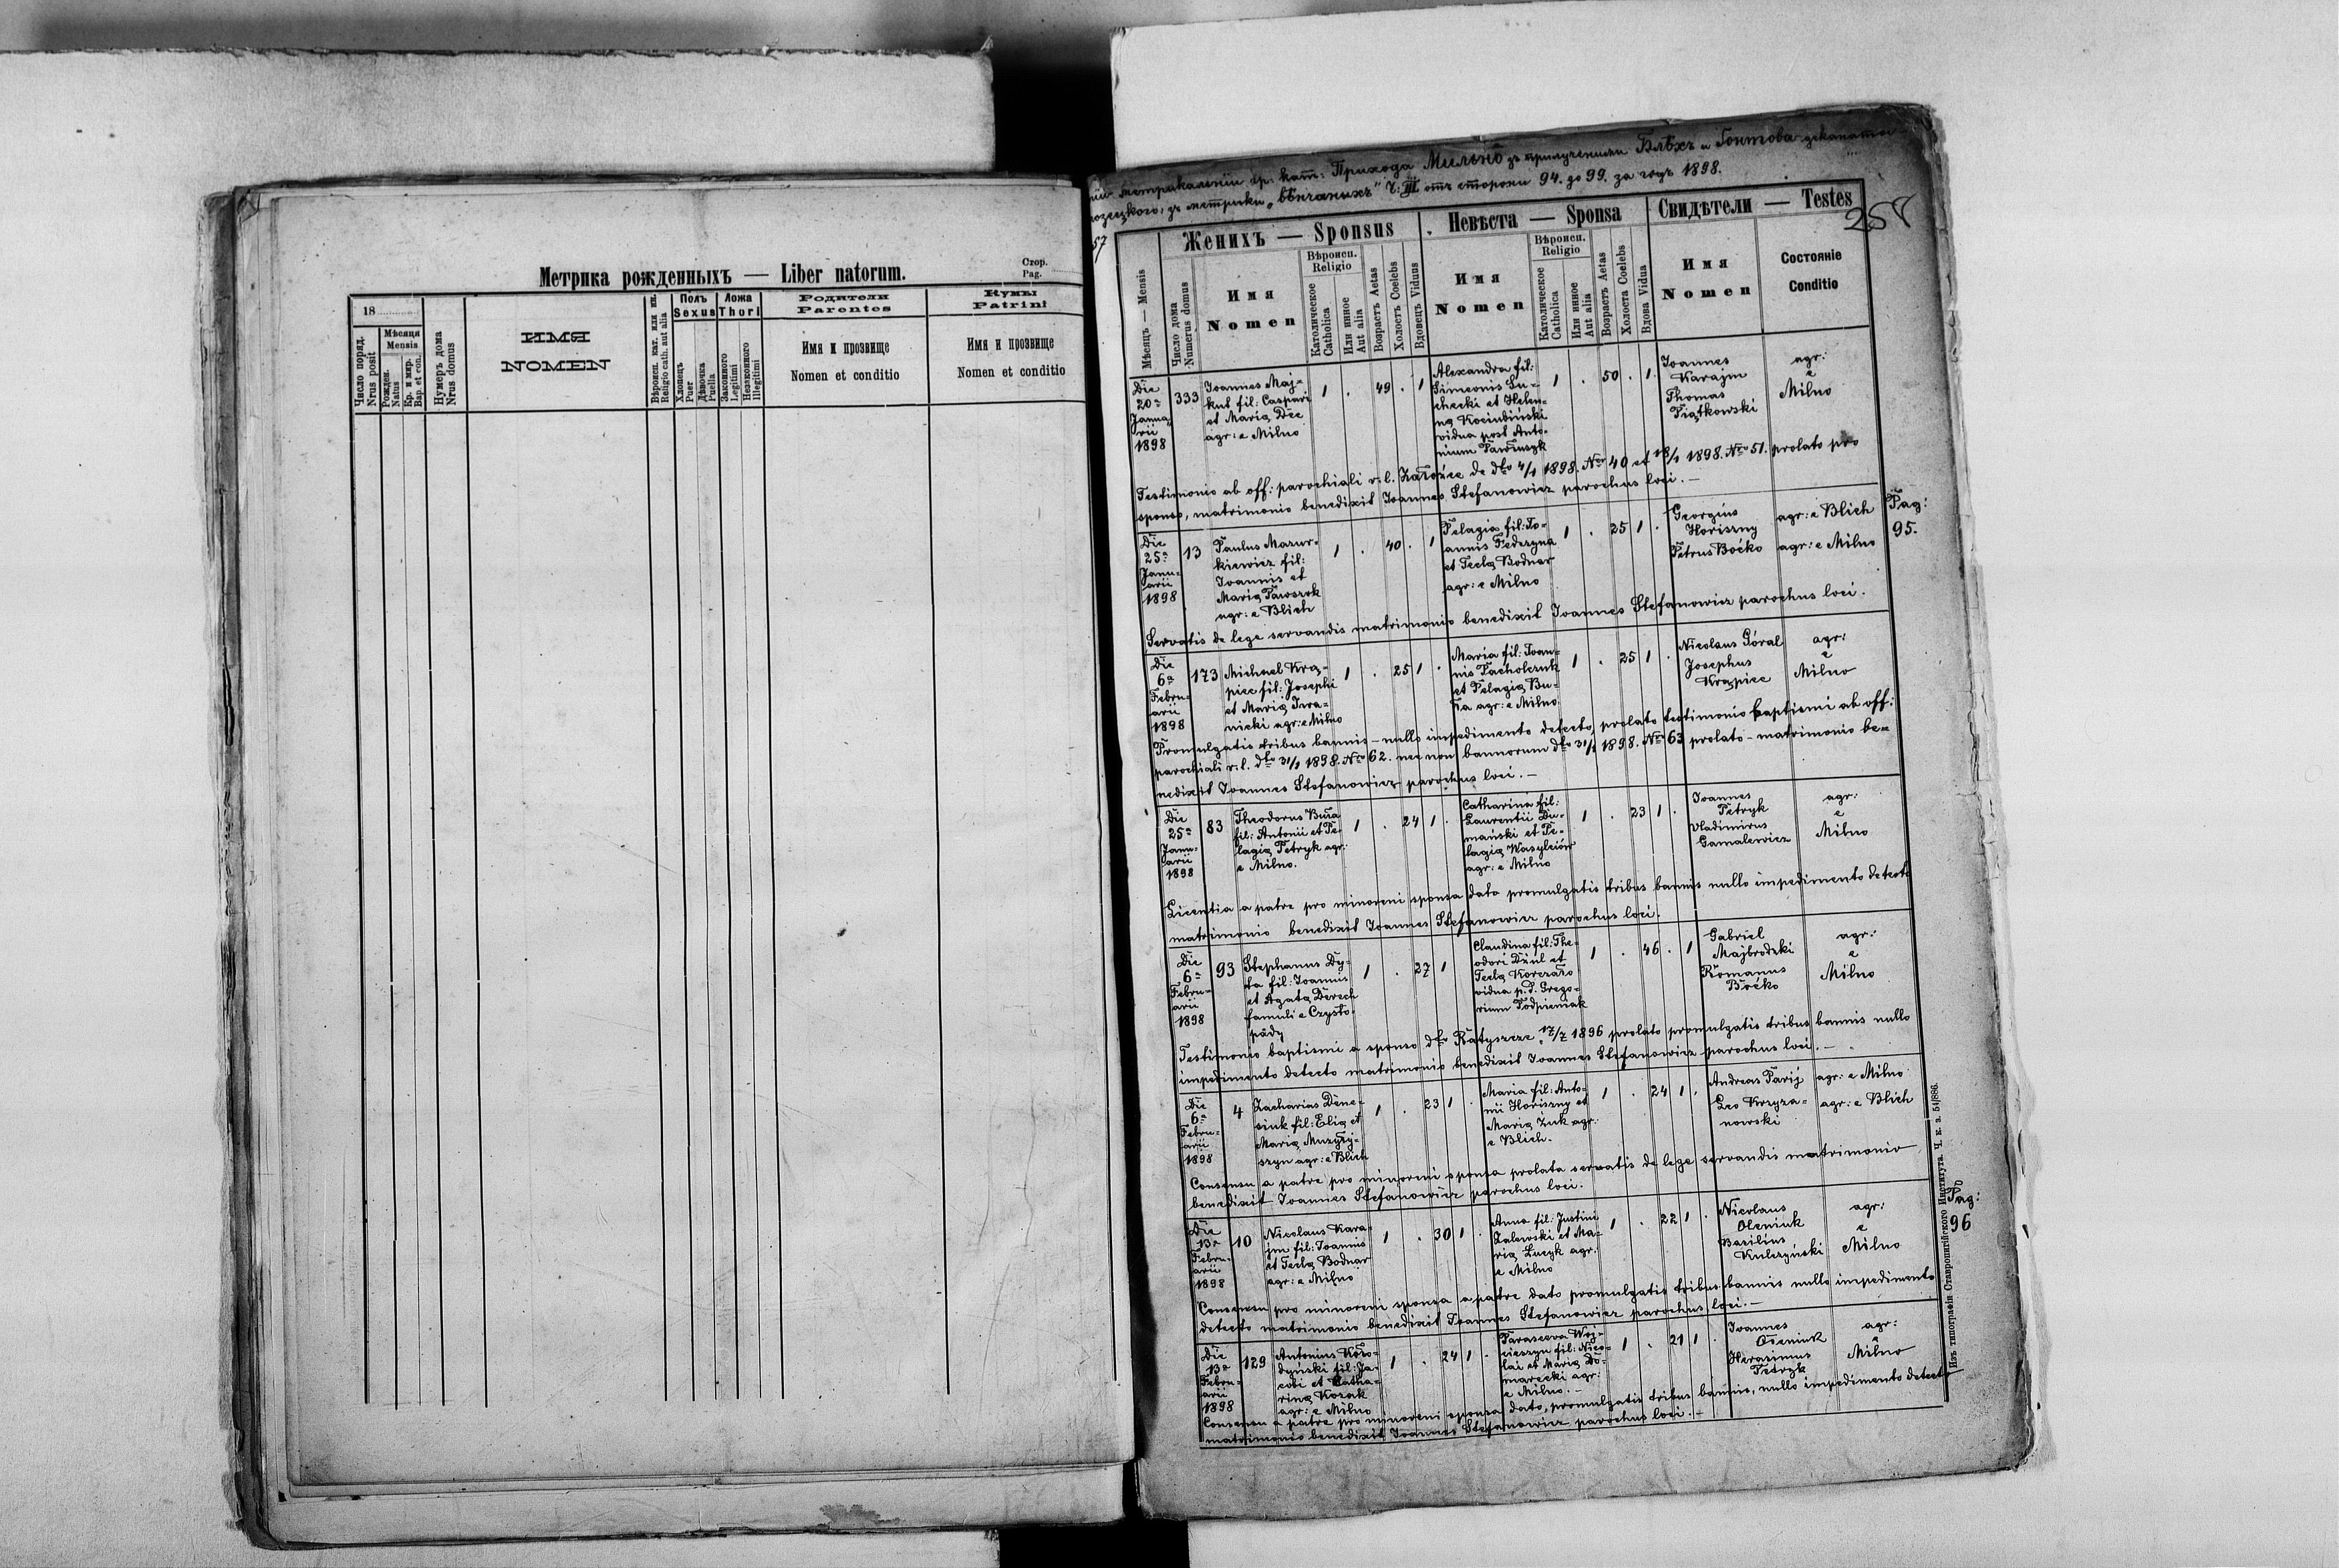 Метрика рожденныхъ — Liber natorum.
Стор.
Pag.
18
Число поряд.
Nrus posit
Мѣсяця
Mensis
Рожден.
Natus
Кр. и мир.
Bap. et con.
Нумеръ дома
Nrus domus
ИМЯ
NOMEN
Вѣроисп. кат. или ин.
Religio cath. aut alia
Полъ
Sexus
Хлопецъ
Puer
Дѣвочка
Puella
Ложа
Thori
Законного
Legitimi
Незаконного
Illegitimi
Родители
Parentes
Имя и прозвище
Nomen et conditio
Кумы
Patrini
Имя и прозвище
Nomen et conditio
метрикальніи гр. кат: Прихода Мильно зъ прилученіми Блѣхъ и Гонтова деканата
зъ метрики „вѣнчаныхъ" Ч: III отъ стороны 94. до 99. за годъ 1898.
57
258
Женихъ — Sponsus
Невѣста — Sponsa
Свидѣтели — Testes
Мѣсяцъ — Mensis
Число дома
Numerus domus
Имя
Nomen
Вѣроисп.
Religio
Католическое
Catholica
Или инное
Aut alia
Возрастъ Aetas
Холостъ Coelebs
Вдовецъ Viduus
Имя
Nomen
Вѣроисп.
Religio
Католическое
Catholica
Или инное
Aut alia
Возрастъ Aetas
Холоста Coelebs
Вдова Vidua
Имя
Nomen
Состояніе
Conditio
Die
20a
Janua
rii
1898
333
Joannes Maj-
kut fil: Caspari
et Maria Dec
agr: e Milno
1 . 49 . 1
Alexandra fil:
Simeonis Su-
checki et Hele-
na Kociubiński
vidua post Anto-
nium Pawluszyk
1 . 50 . 1
Joannes
Karajm
Thomas
Piątkowski
agr:
e
Milno
Testimonio ab off: parochiali r. l. Załoźce de dto 4/1 1898. Nro 40 et 18/1 1898. Nro 51. prolato pro
sponso, matrimonio benedixit Joannes Stefanowicz parochus loci. —
Die
25a
Janu-
arii
1898
13
Paulus Mazur-
kiewicz fil:
Joannis et
Maria Pawszok
agr: e Blich
1 . 40 . 1
Pelagia fil: Jo-
annis Federyna
et Tecla Bodnar
agr: e Milno
1 . 25 1 .
Georgius
Horiszny
Petrus Boćko
agr: e Blich
agr: e Milno
Pag:
95.
Servatis de lege servandis matrimonio benedixit Joannes Stefanowicz parochus loci.
Die
6a
Febru-
arii
1898
173
Michael Krą-
piec fil: Josephi
et Maria Iwa-
nicki agr: e Milno
1 . 25 1 .
Maria fil: Joan-
nis Pacholczuk
et Pelagia Bu-
ła agr: e Milno
1 . 25 1 .
Nicolaus Góral
Josephus
Krąpiec
agr:
e
Milno
Promulgatis tribus bannis – nullo impedimento detecto, prolato testimonio baptismi ab off:
parochiali r. l. dto 31/1 1898. Nro 62. nec non bannorum dto 31/1 1898. Nro 63 prolato – matrimonio be-
nedixit Joannes Stefanowicz parochus loci. —
Die
25a
Janu-
arii
1898
83
Theodorus Buła
fil: Antonii et Pe-
lagia Petryk agr:
e Milno.
1 . 24 1 .
Catharina fil:
Laurentii Du-
mański et Pe-
lagia Wasylciów
agr: e Milno
1 . 23 1 .
Joannes
Petryk
Vladimirus
Gamalewicz
agr:
e
Milno
Licentia a patre pro minoreni sponsa dato promulgatis tribus bannis nullo impedimento detecto
matrimonio benedixit Joannes Stefanowicz parochus loci.
Die
6a
Febru-
arii
1898
93
Stephanus Dy-
ta fil: Joannis
et Agata Derech
famuli e Czysto-
pady
1 . 27 1
Claudina fil: The-
odori Dziul et
Tecla Korczało
vidua p. d. Grego-
rium Podpieniak
1 . 46 . 1
Gabriel
Majbrodzki
Romanus
Boćko
agr:
e
Milno
Testimonio baptismi a sponso dto Ratyszcze 17/7 1896 prolato promulgatis tribus bannis nullo
impedimento detecto matrimonio benedixit Joannes Stefanowicz parochus loci. —
Die
6a
Febru-
arii
1898
4
Zacharias Dene-
siuk fil: Elia et
Maria Muzyły-
szyn agr: e Blich
1 . 23 1 .
Maria fil: Anto-
nii Horiszny et
Maria Żuk agr:
e Blich.
1 . 24 1 .
Andreas Parij
Leo Krzyża-
nowski
agr: e Milno
agr: e Blich
Consensu a patre pro minoreni sponsa prolata servatis de lege servandis matrimonio
benedixit Joannes Stefanowicz parochus loci.
Die
13a
Febru-
arii
1898
10
Nicolaus Kara-
jm fil: Joannis
et Tecla Bodnar
agr: e Milno
1 . 30 1 .
Anna fil: Justini
Zalewski et Ma-
ria Łucyk agr:
e Milno
1 . 22 1 .
Nicolaus
Oleniuk
Basilius
Kulczyński
agr:
e
Milno
Pag:
96
Consensu pro minoreni sponsa a patre dato promulgatis tribus bannis nullo impedimento
detecto matrimonio benedixit Joannes Stefanowicz parochus loci. —
Die
13a
Febru-
arii
1898
129
Antonius Koło-
dyński fil: Ja-
cobi et Catha-
rina Kozak
agr: e Milno
1 . 24 1 .
Parasceva Woj-
cieszyn fil: Nico-
lai et Maria Do-
marecki agr:
e Milno. —
1 . 21 1 .
Joannes
Oleniuk
Herasimus
Petryk
agr:
e
Milno
Consensu a patre pro minoreni sponsa dato, promulgatis tribus bannis, nullo impedimento detecto
matrimonio benedixit Joannes Stefanowicz parochus loci. —
Изъ типографіи Ставропигійского Института. Ч. к. з. 51/886.